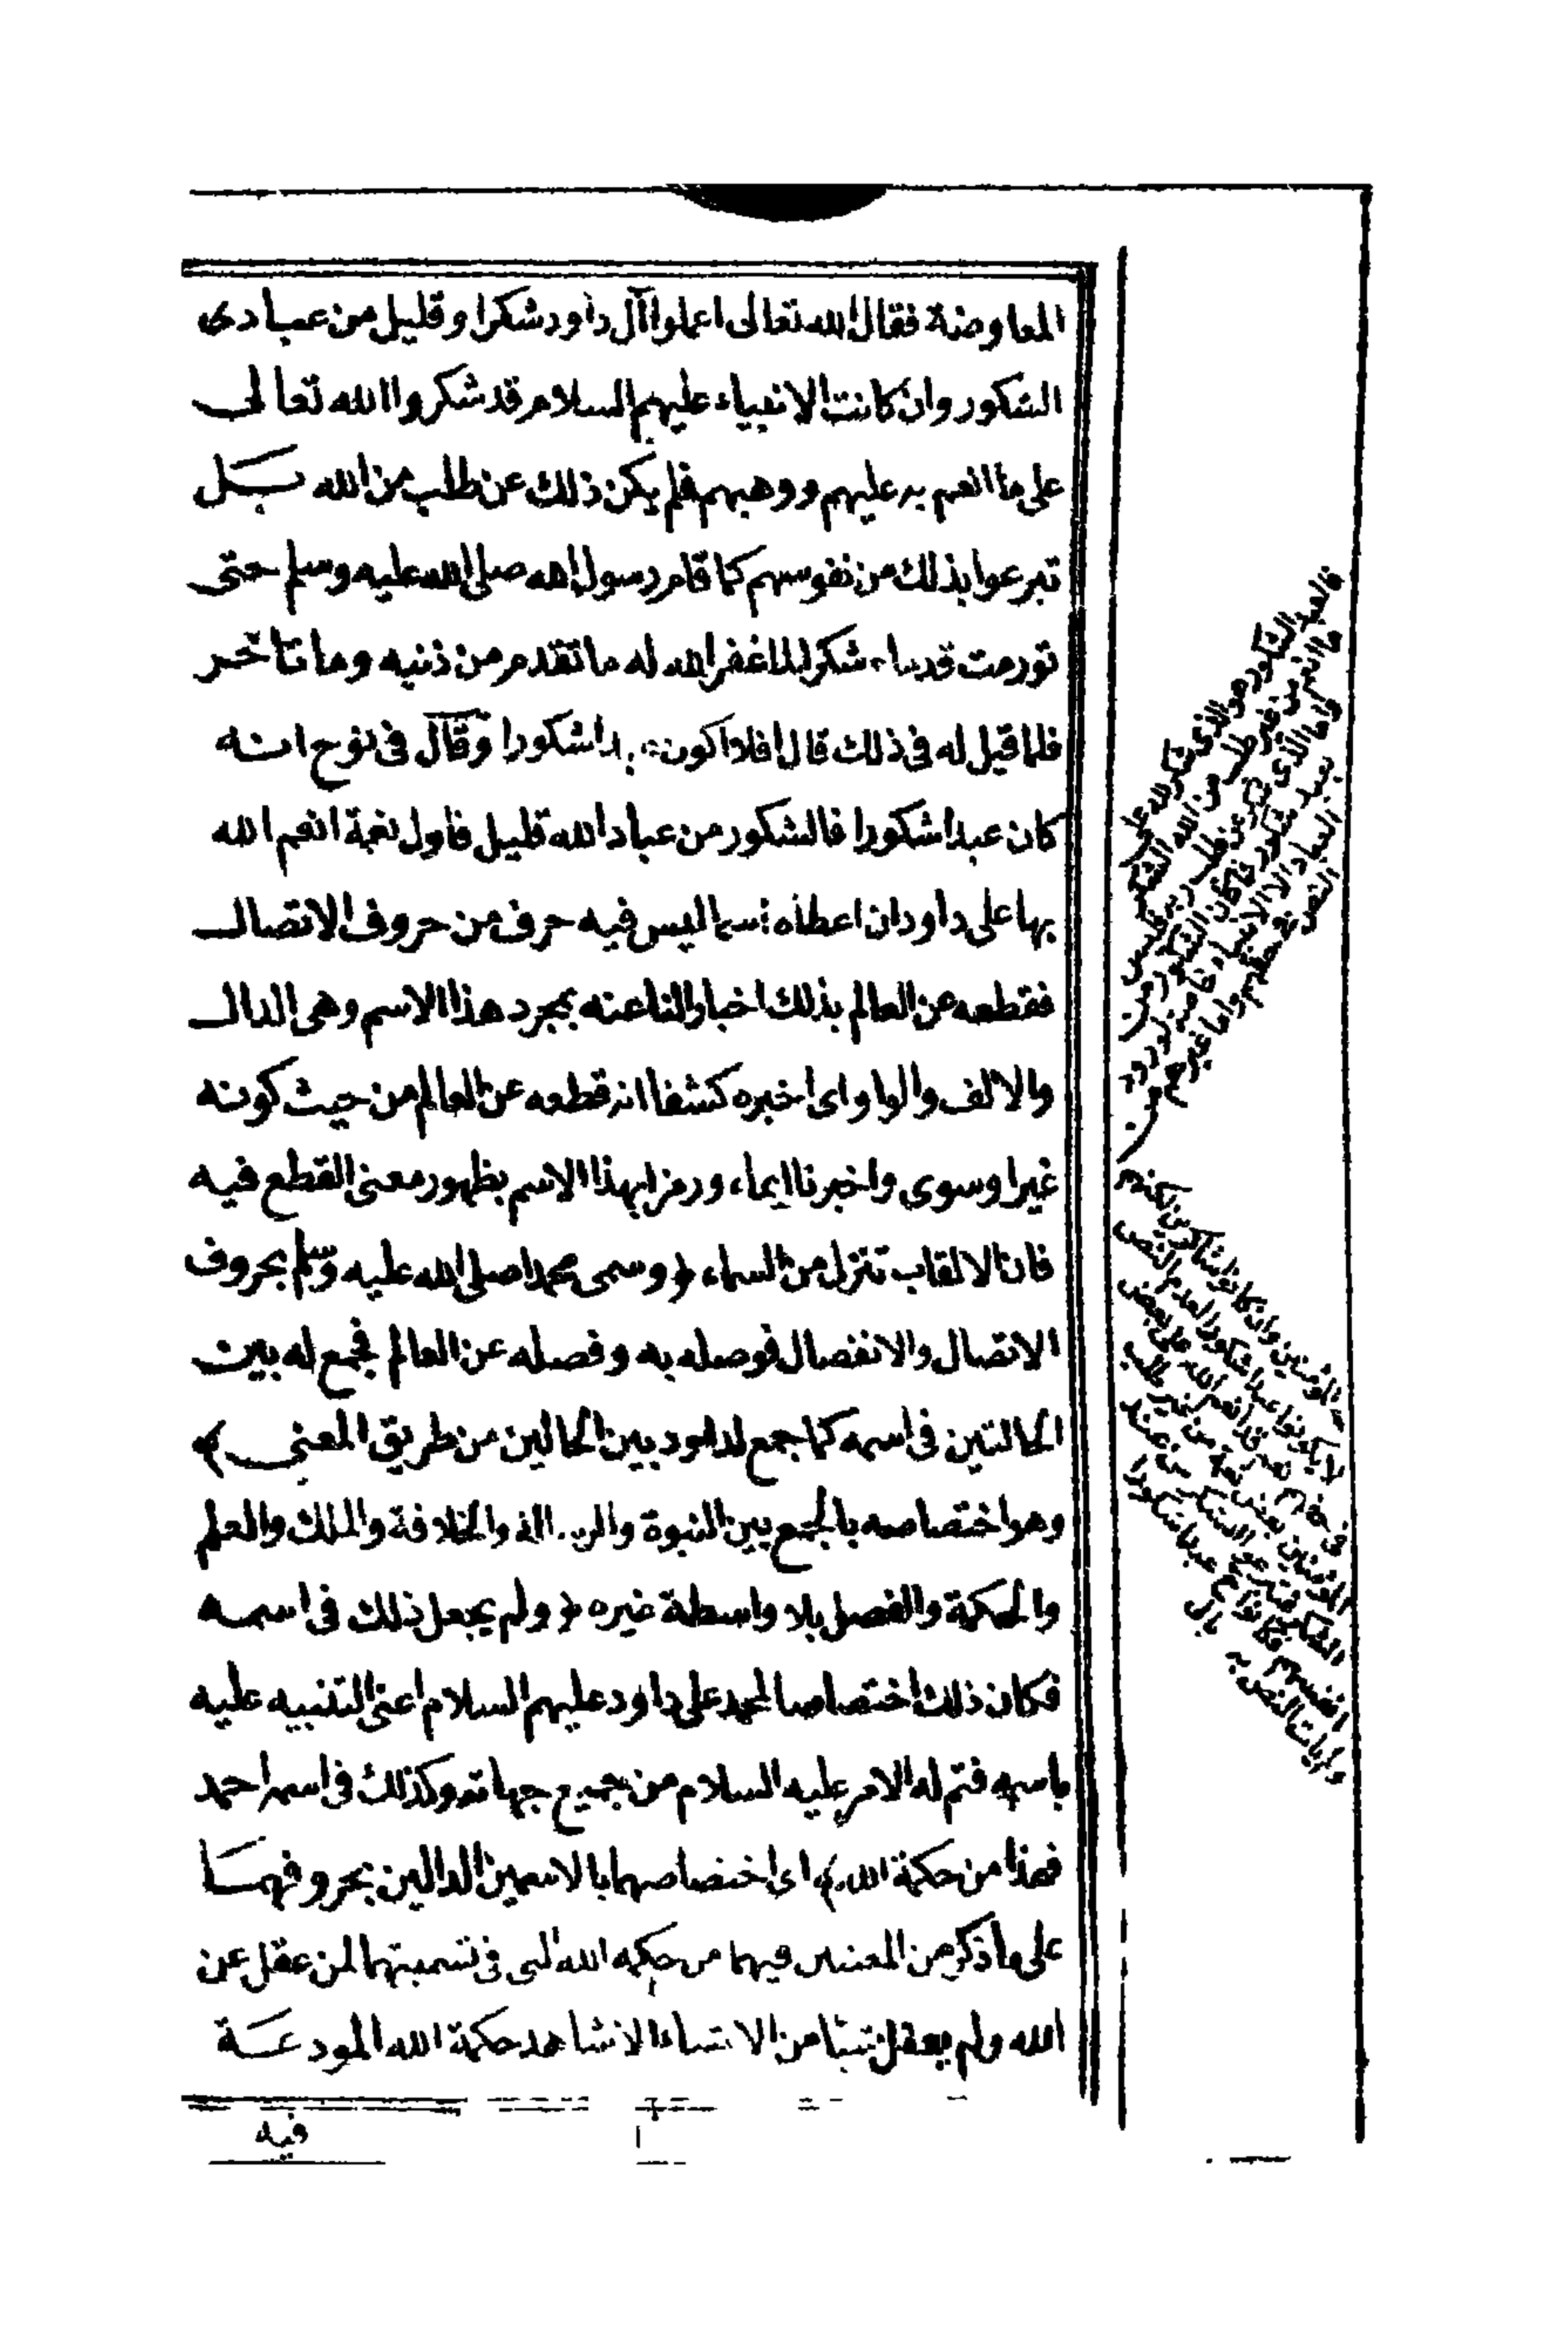 المعاوضة فقال الله تعالى اعملوا آل داود شكرا وقليل من عبادى
الشكور وان كانت الانبياء عليهم السلام قد شكروا الله تعالى
على ما انعم به عليهم ووهبهم فلم يكن ذلك عن طلب من الله بل
تبرعوا بذلك من نفوسهم كما قام رسول الله صلى الله عليه وسلم حتى
تورمت قدماه شكرا لما غفر الله له ما تقدم من ذنبه وما تأخر
فلما قيل له فى ذلك قال افلا اكون عبدا شكورا وقال فى نوح انه
كان عبدا شكورا فالشكور من عباد الله قليل فاول نعمة انعم الله
بها على داود ان اعطاه اسما ليس فيه حرف من حروف الاتصال
فقطعه عن العالم بذلك اخبارا لنا عنه بمجرد هذا الاسم وهى الدال
والالف والواو اى اخبره كشفا انه قطعه عن العالم من حيث كونه
غيرا وسوى واخبرنا ايماء ورمزا بهذا الاسم بظهور معنى القطع فيه
فان الالقاب تنزل من السماء ﴿ وسمى محمدا صلى الله عليه وسلم بحروف
الاتصال والانفصال فوصله به وفصله عن العالم فجمع له بين
الحالتين فى اسمه كما جمع لداود بين الحالين من طريق المعنى ﴾
وهو اختصاصه بالجمع بين النبوة والرسالة والخلافة والملك والعلم
والحكمة والفصل بلا واسطة غيره ﴿ ولم يجعل ذلك فى اسمه
فكان ذلك اختصاصا لمحمد على داود عليهم السلام اعنى التنبيه عليه
باسمه فتم له الامر عليه السلام من جميع جهاته وكذلك فى اسمه احمد
فهذا من حكمة الله ﴾ اى اختصاصهما بالاسمين الدالين بحروفهما
على ما ذكر من المعنيين فيهما من حكمة الله التى فى تسميتهما لمن عقل عن
الله ولم يعقل شيئا من الاشياء الا شاهد حكمة الله المودعة
فيه
فالعبد الشكور هو الذى شكر الله على
ما انعم من غير طلب من الله الشكر